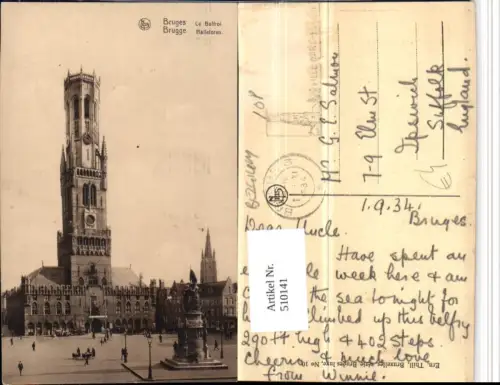 Bruges Le Beffroi
Brugge Halletoren.
10f
BELGIUM
Mr G. L. Salmon
7-9 Elm St
Ipswich
Suffolk
England.
1.9.34.
Bruges.
Dear Uncle.
Have spent an
week here & am
the sea tonight for
climbed up this belfry
290 ft high & 402 steps.
Cheerio & much love
from Winnie.
Artikel Nr.
510141
Ern. Thill, Bruxelles